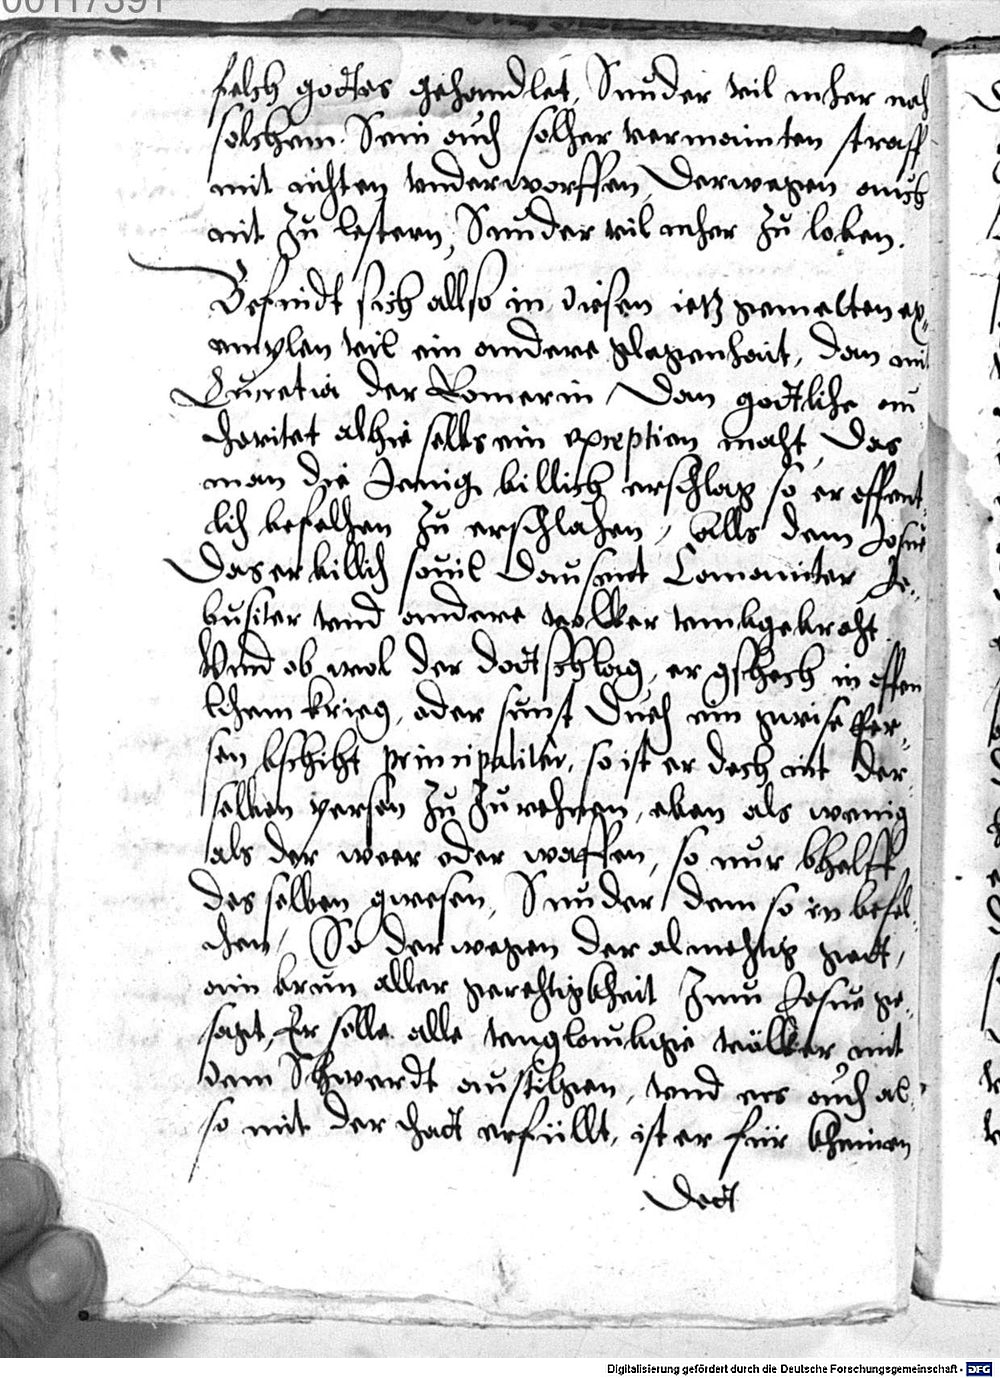 00117391
felch gottes gehandlet, Sunder vil mher nach
solchem. Sein auch solcher vermainten straff
mit nichten underworffen, Derwegen auch
nit zu lestern, Sunder vil mher zu loben.
Befindt sich allso in diesen ietz gemelten ex-
emplen vil ein andere glegenhait, dan mit
Lucretia der Romerin / Dan gottliche au
choritet alhie selbs ein exception macht, Das
man die Jenig billich erschlag so er offent-
lich befelhen zu erschlahen, Alls dem Josue
Das er billich souil Dausent Cananiter Je-
busiter vnd andere völker vmbgebracht.
Vnd ob wol der dodtschlag, er gschech in offen
lichem krieg, oder sunst durch ein gwise per-
son bschicht principaliter, so ist er doch nit der
selben person zu zurechnen, eben als wenig
als der weer oder waffen, so nur bhelff
des selben gwesen, Sunder dem so in befel-
chen, So derwegen der almechtig gott,
ain brun aller gerechtigkheit Zum Josue ge-
sagt, Er solle alle vnglaubige völker mit
dem Schwerdt austilgen, vnd ers auch al-
so mit der that erfüllt, ist er für kheinen
Dodt
Digitalisierung gefördert durch die Deutsche Forschungsgemeinschaft - DFG